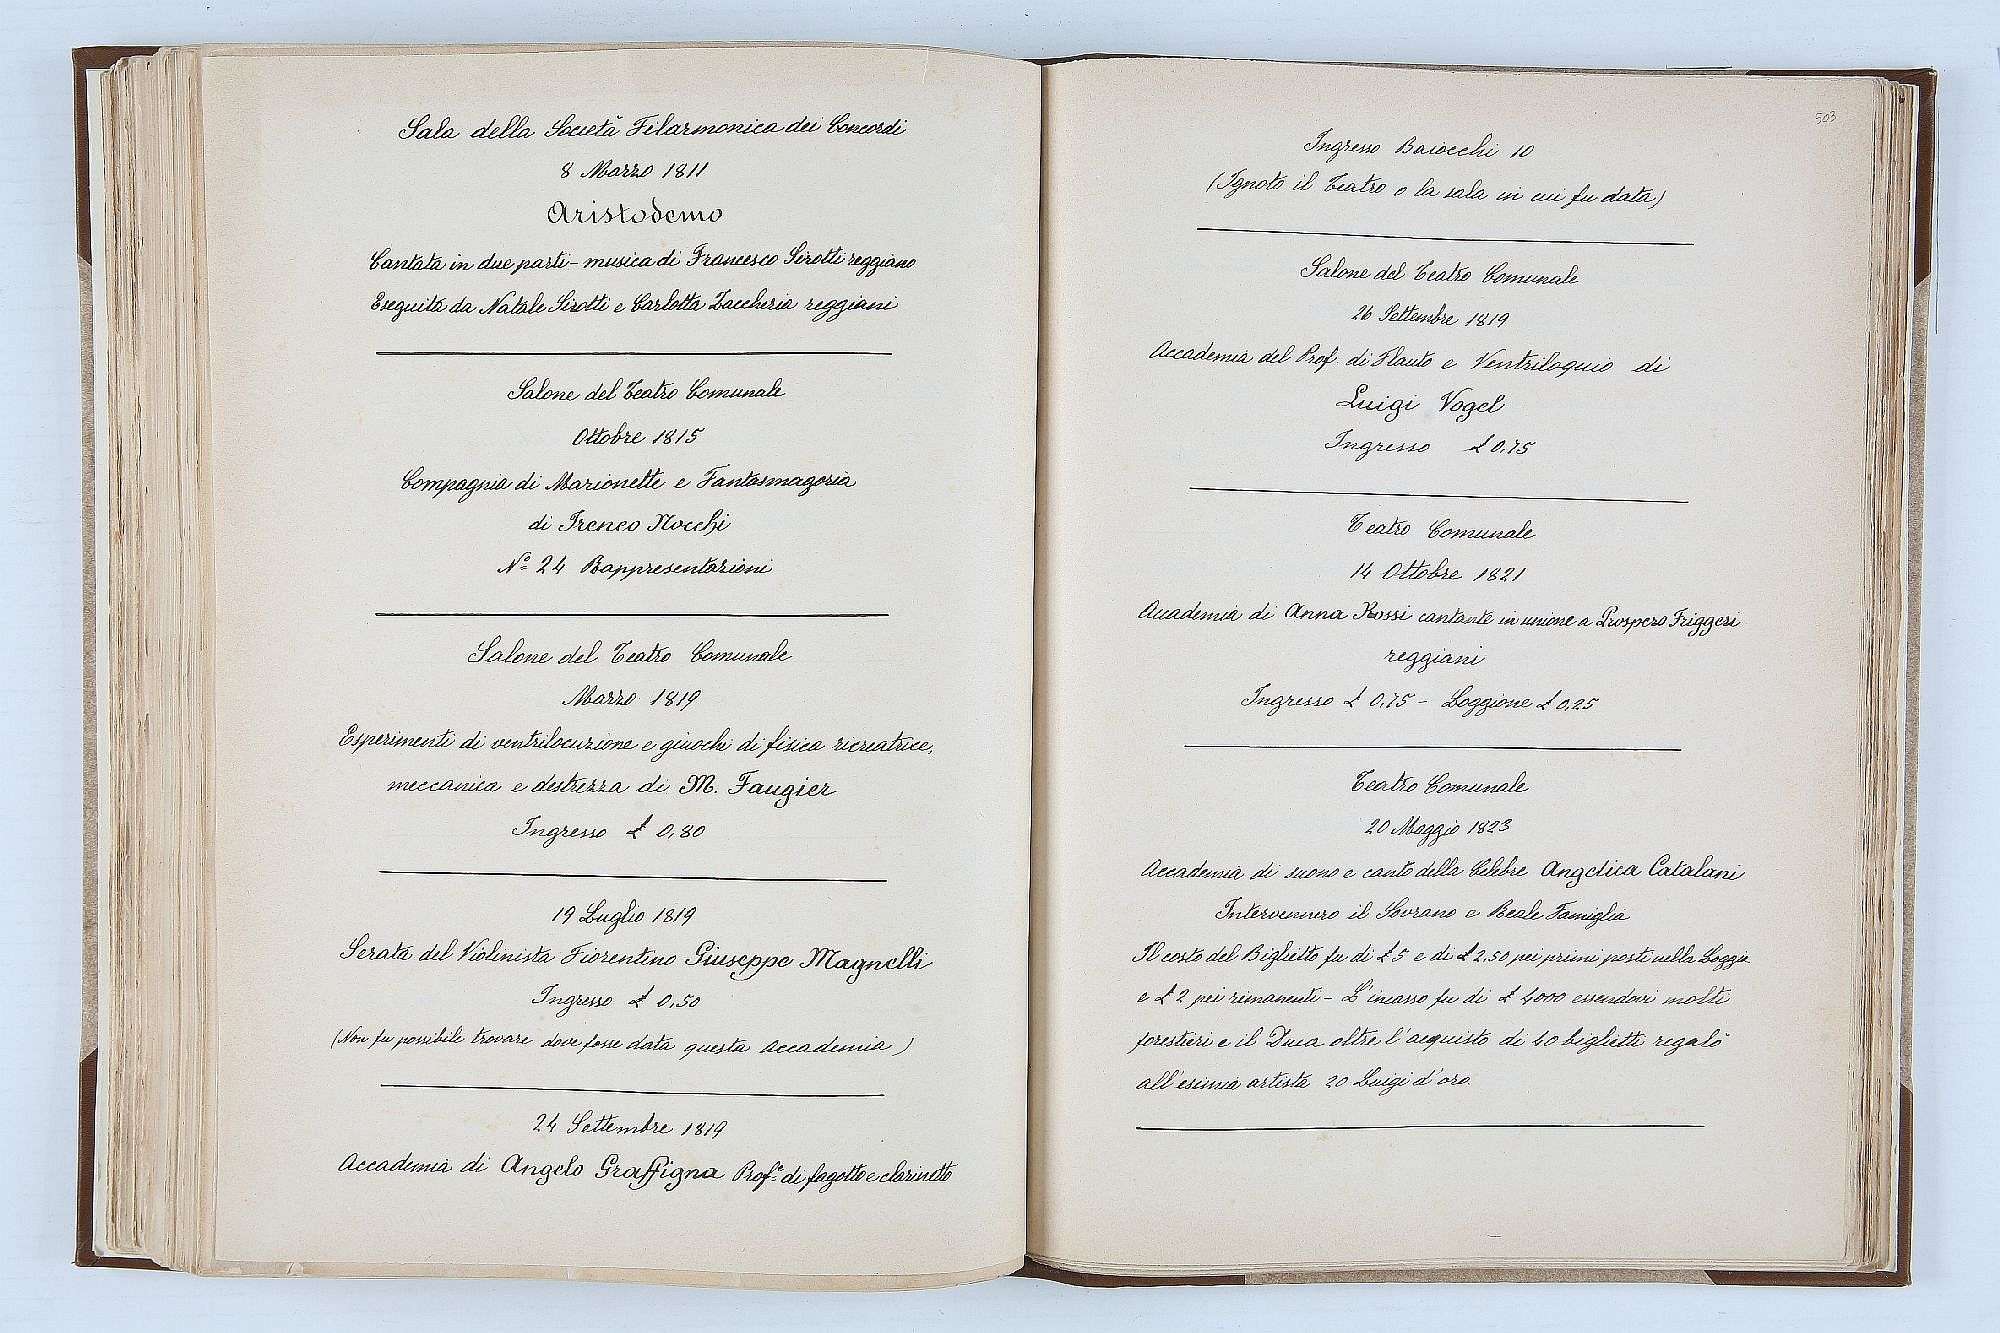 Sala della Società Filarmonica dei Concordi
8 Marzo 1811
Aristodemo
Cantata in due parti - musica di Francesco Sirotti reggiano
Eseguita da Natale Sirotti e Carlotta Zaccheria reggiani
Salone del Teatro Comunale
Ottobre 1815
Compagnia di Marionette e Fantasmagoria
di Ireneo Nocchi
N.° 24 Rappresentazioni
Salone del Teatro Comunale
Marzo 1819
Esperimenti di ventrilocuzione e giuochi di fisica ricreatrice,
meccanica e destrezza di M. Faugier
Ingresso £ 0,80
19 Luglio 1819
Serata del Violinista Fiorentino Giuseppe Magnelli
Ingresso £ 0,50
(Non fu possibile trovare dove fosse data questa accademia)
24 Settembre 1819
Accademia di Angelo Graffigna Prof.e di fagotto e clarinetto
503
Ingresso Baiocchi 10
(Ignoto il Teatro o la sala in cui fu data)
Salone del Teatro Comunale
26 Settembre 1819
Accademia del Prof. di Flauto e Ventriloquio di
Luigi Vogel
Ingresso £ 0,75
Teatro Comunale
14 Ottobre 1821
Accademia di Anna Rossi cantante in unione a Prospero Friggeri
reggiani
Ingresso £ 0,75 - Loggione £ 0,25
Teatro Comunale
20 Maggio 1823
Accademia di suono e canto della Celebre Angelica Catalani
Intervennero il Sovrano e Reale Famiglia
Il costo del Biglietto fu di £ 5 e di £ 2,50 pei primi posti nella Loggia
e £ 2 pei rimanenti - L'incasso fu di £ 4000 essendovi molti
forestieri e il Duca oltre l'acquisto di 40 biglietti regalò
all'esimia artista 20 Luigi d'oro